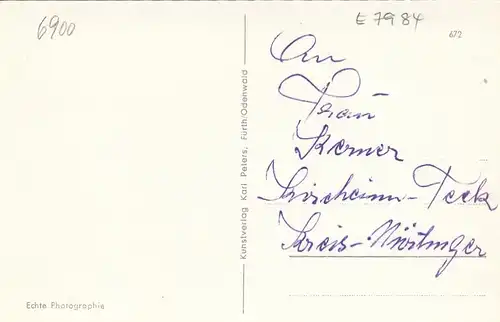 6900
E 7984
672
An
Frau
Kerner
Kirchheim-Teck
Kreis-Nürtingen
Kunstverlag Karl Peters, Fürth/Odenwald
Echte Photographie